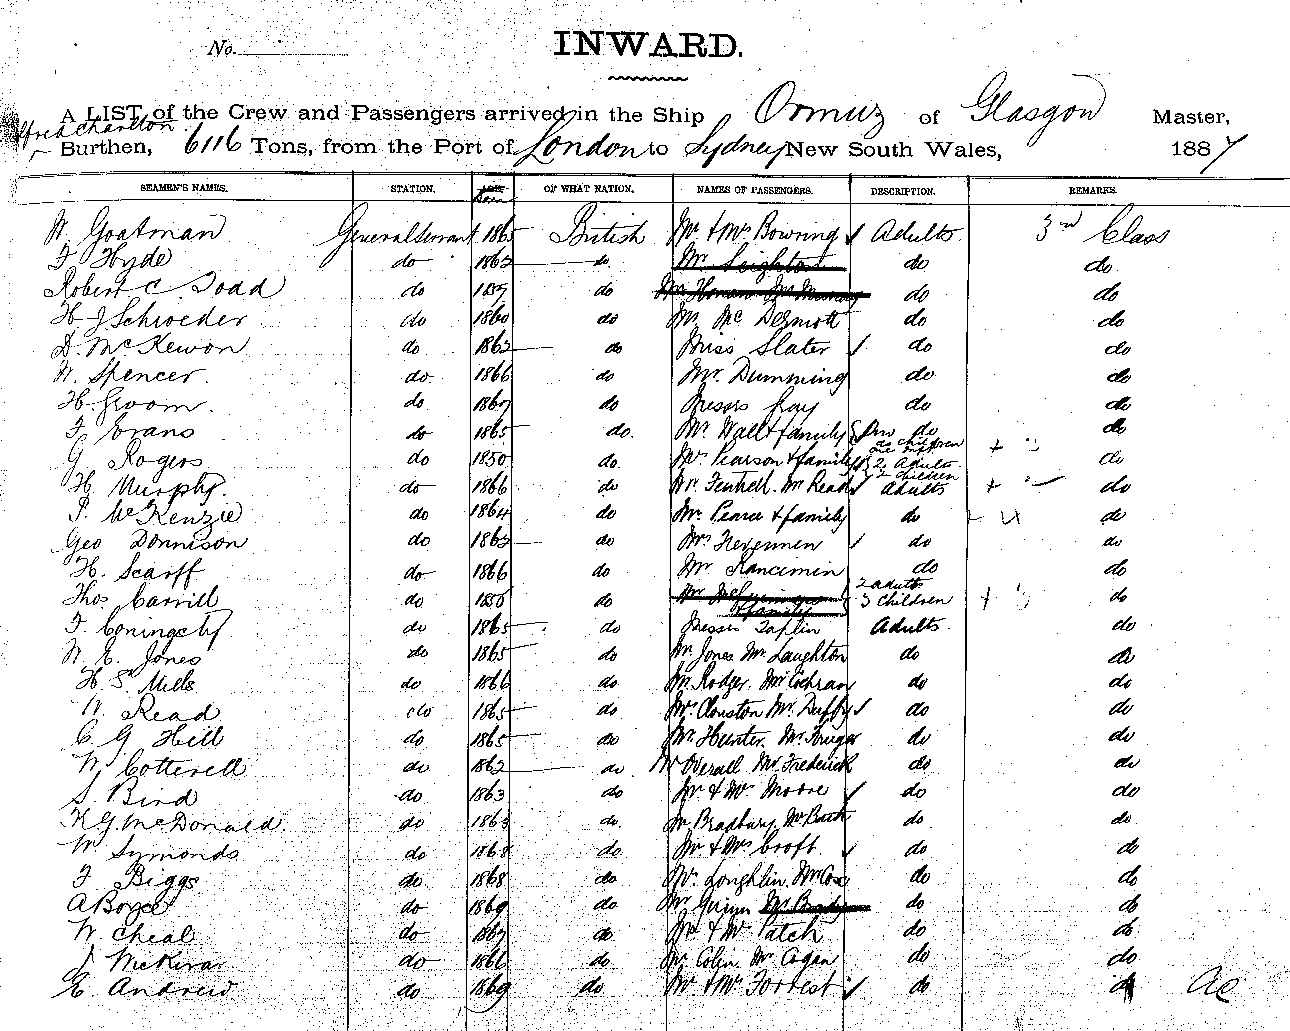 No.
INWARD.
A LIST of the Crew and Passengers arrived in the Ship Ormuz of Glasgow Master,
Alfred Charlton
Burthen, 6116 Tons, from the Port of London to Sydney New South Wales, 1887
SEAMEN'S NAMES. STATION. Born OF WHAT NATION. NAMES OF PASSENGERS. DESCRIPTION. REMARKS.
W. Goatman General servant 1865 British Mr & Mrs Bowring Adults 3rd Class
F Hyde do 1862 do Mr Leighton do do
Robert C Todd do 1859 do Mr Mr Murray do do
H J Schroeder do 1860 do Mr McDermott do do
D. McKewon do 1862 do Miss Slater do do
W. Spencer do 1866 do Mr. Dumming do do
H. Groom do 1867 do Messrs Gray do do
F Evans do 1865 do. Mr Wall & family do do
do children
one inft
G Rogers do 1850 do. Mr. Pearson & family 2 Adults do
2 Children
H Murphy. do 1866 do Mr. Mr Read Adults do
P. McKenzie do 1864 do Mr Pearce & family do 4 do
Geo Donnison do 1862 do Mrs do do
H. Scarff do 1866 do Mr Rancimin do do
2 adults
Thos Carrill do 1856 do Mr family 3 Children + 3 do
F Coningsby do 1865 do Messrs Taplin Adults. do
W. E. Jones do 1865 do Mr Jones Mr Laughton do do
H. S. Mills do 1866 do Mr Rodger. Mr Cochran do do
W Read do 1865 do Mr Clouston Mr. Duffy do do
C G Hill do 1865 do Mr Hunter. Mr Kruger do do
W Cotterell do 1862 do Mr Overall Mr Frederick do do
S. Bird do 1863 do Mr & Mrs Moore do do
H.G. McDonald do 1863 do. Mr Bradbury. Mr do do
W Symonds do 1868 do Mr & Mrs Croft do do
F Biggs do 1868 do Mr. Loughlin. Mr Cox do do
A Boyce do 1869 do Mr Mr do do
W Cheal do 1867 do Mr & Mrs Patch do do
J McKinar do 1866 do Mr Colin Mr Cogan do do
E. Andrew do 1869 do Mr & Mrs Forrest do do